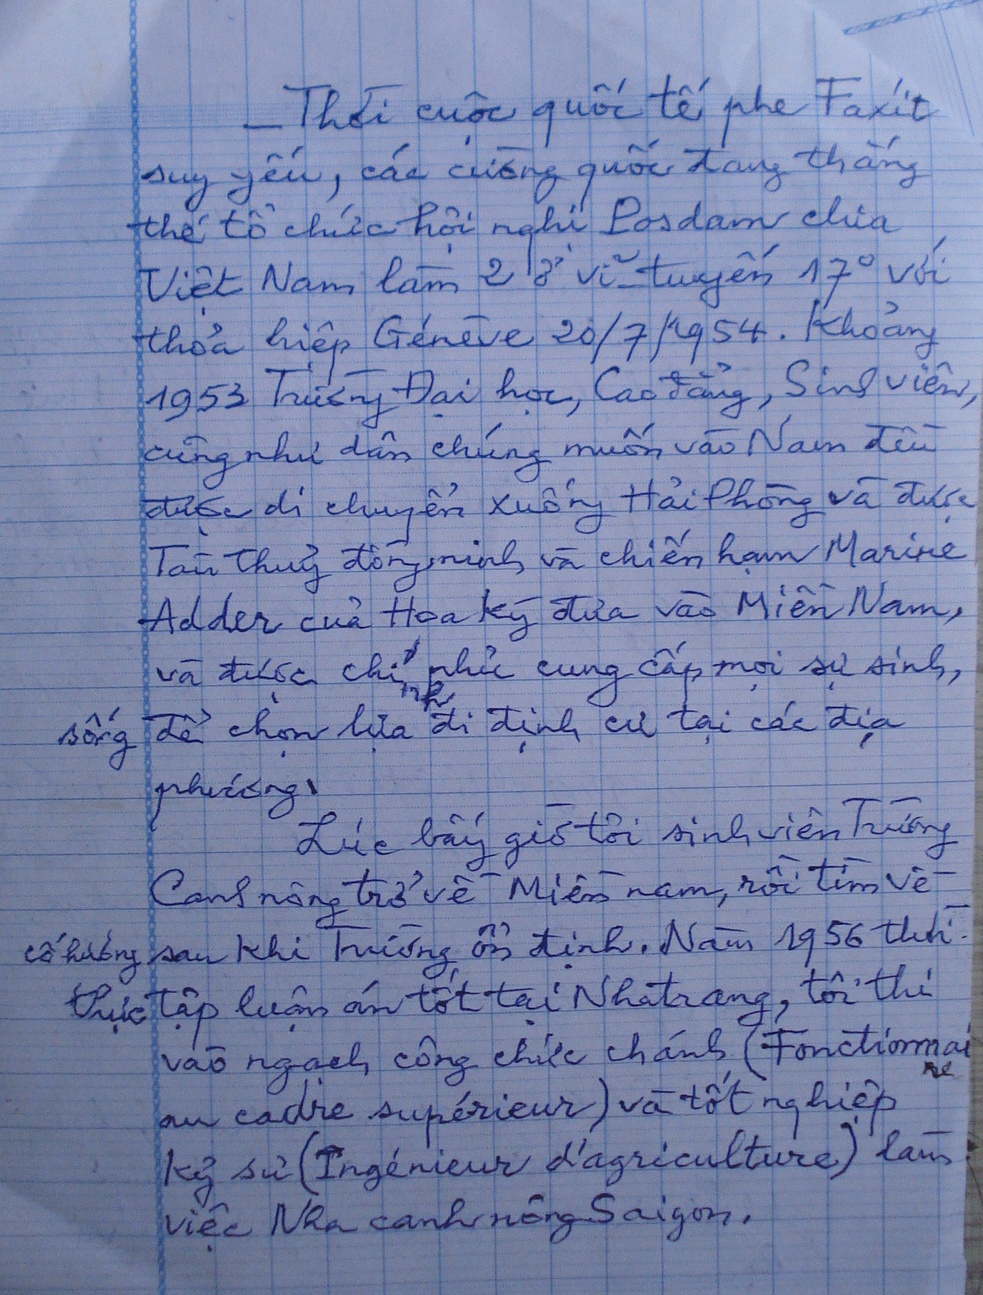 _ Thời cuộc quốc tế phe Faxít
suy yếu, các cường quốc đang thắng
thế tổ chức hội nghị Posdam chia
Việt Nam làm 2 ở vĩ-tuyến 17° với
thỏa hiệp Génève 20/7/1954. Khoảng
1953 Trường Đại học, Cao đẳng, Sinh viên,
cũng như dân chúng muốn vào Nam đều
được di chuyển xuống Hải Phòng và được
Tàu thuỷ đồng minh và chiến hạm Marine
Adder của Hoa Kỳ đưa vào Miền Nam,
và được chính phủ cung cấp mọi sự sinh,
sống để chọn lựa đi định cư tại các địa
phương.
Lúc bấy giờ tôi sinh viên Trường
Canh nông trở về Miền nam, rồi tìm về
cố hương sau khi Trường ổn định. Năm 1956 thời
thực tập luận án tốt tại Nhatrang, tôi thi
vào ngạch công chức chánh (Fonctionnaire
au cadre supérieur) và tốt nghiệp
Kỹ sư (Ingénieur d'agriculture) làm
việc Nha canh nông Saigon.